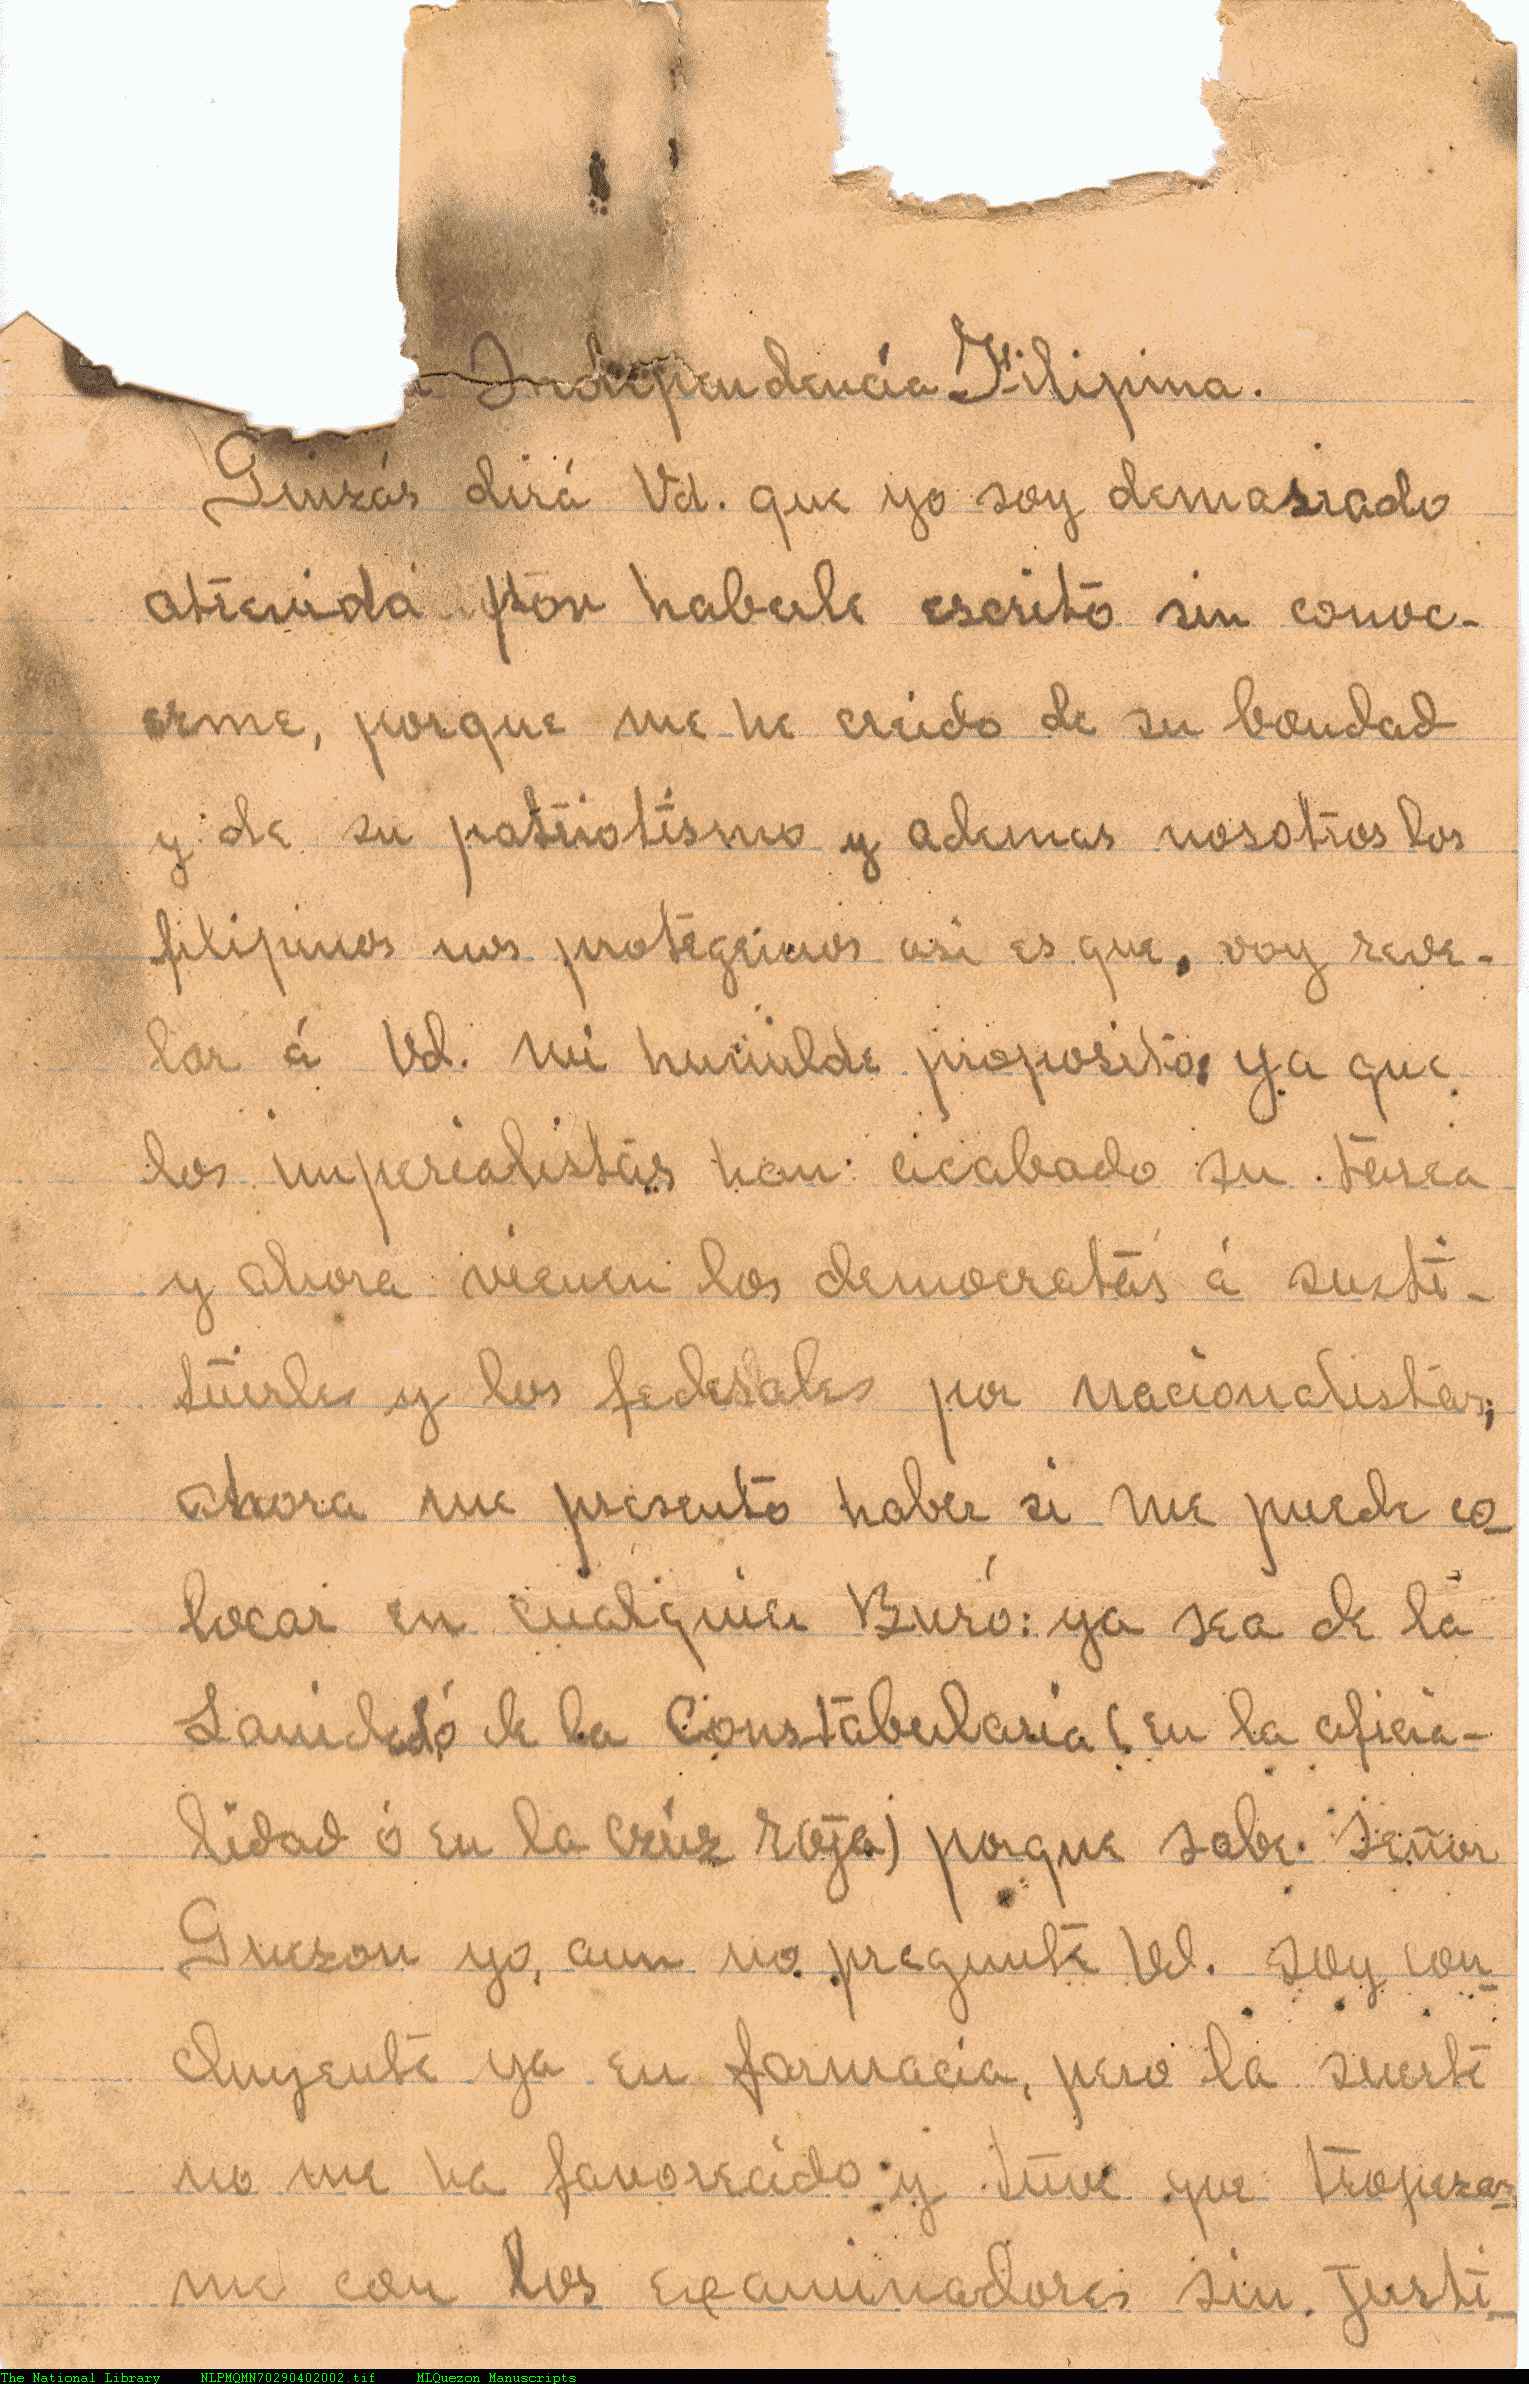 a Independencia Filipina.
Quizás dirá Vd. que yo soy demasiado
atrevido por haberle escrito sin conoc-
erme, porque me he creido de su bondad
y de su patriotismo y ademas nosotros los
filipinos nos protegemos asi es que, voy reve-
lar á Vd. mi humilde proposito; ya que
los imperialistas han acabado su tarea
y ahora vienen los democratas á susti-
tuirles y los federales por nacionalistas;
ahora me presento haber si me puede co-
locar en cualquier Buró: ya sea de la
Sanidad ó de la Constabularia (en la oficia-
lidad ó en la cruz roja) porque sabe Señor
Quezon yo, aun no pregunte Vd. soy con-
cluyente ya en farmacia, pero la suerte
no me ha favorecido y tuve que tropezar-
me con los examinadores sin justi-
The National Library NLPMQMN70290402002.tif MLQuezon Manuscripts